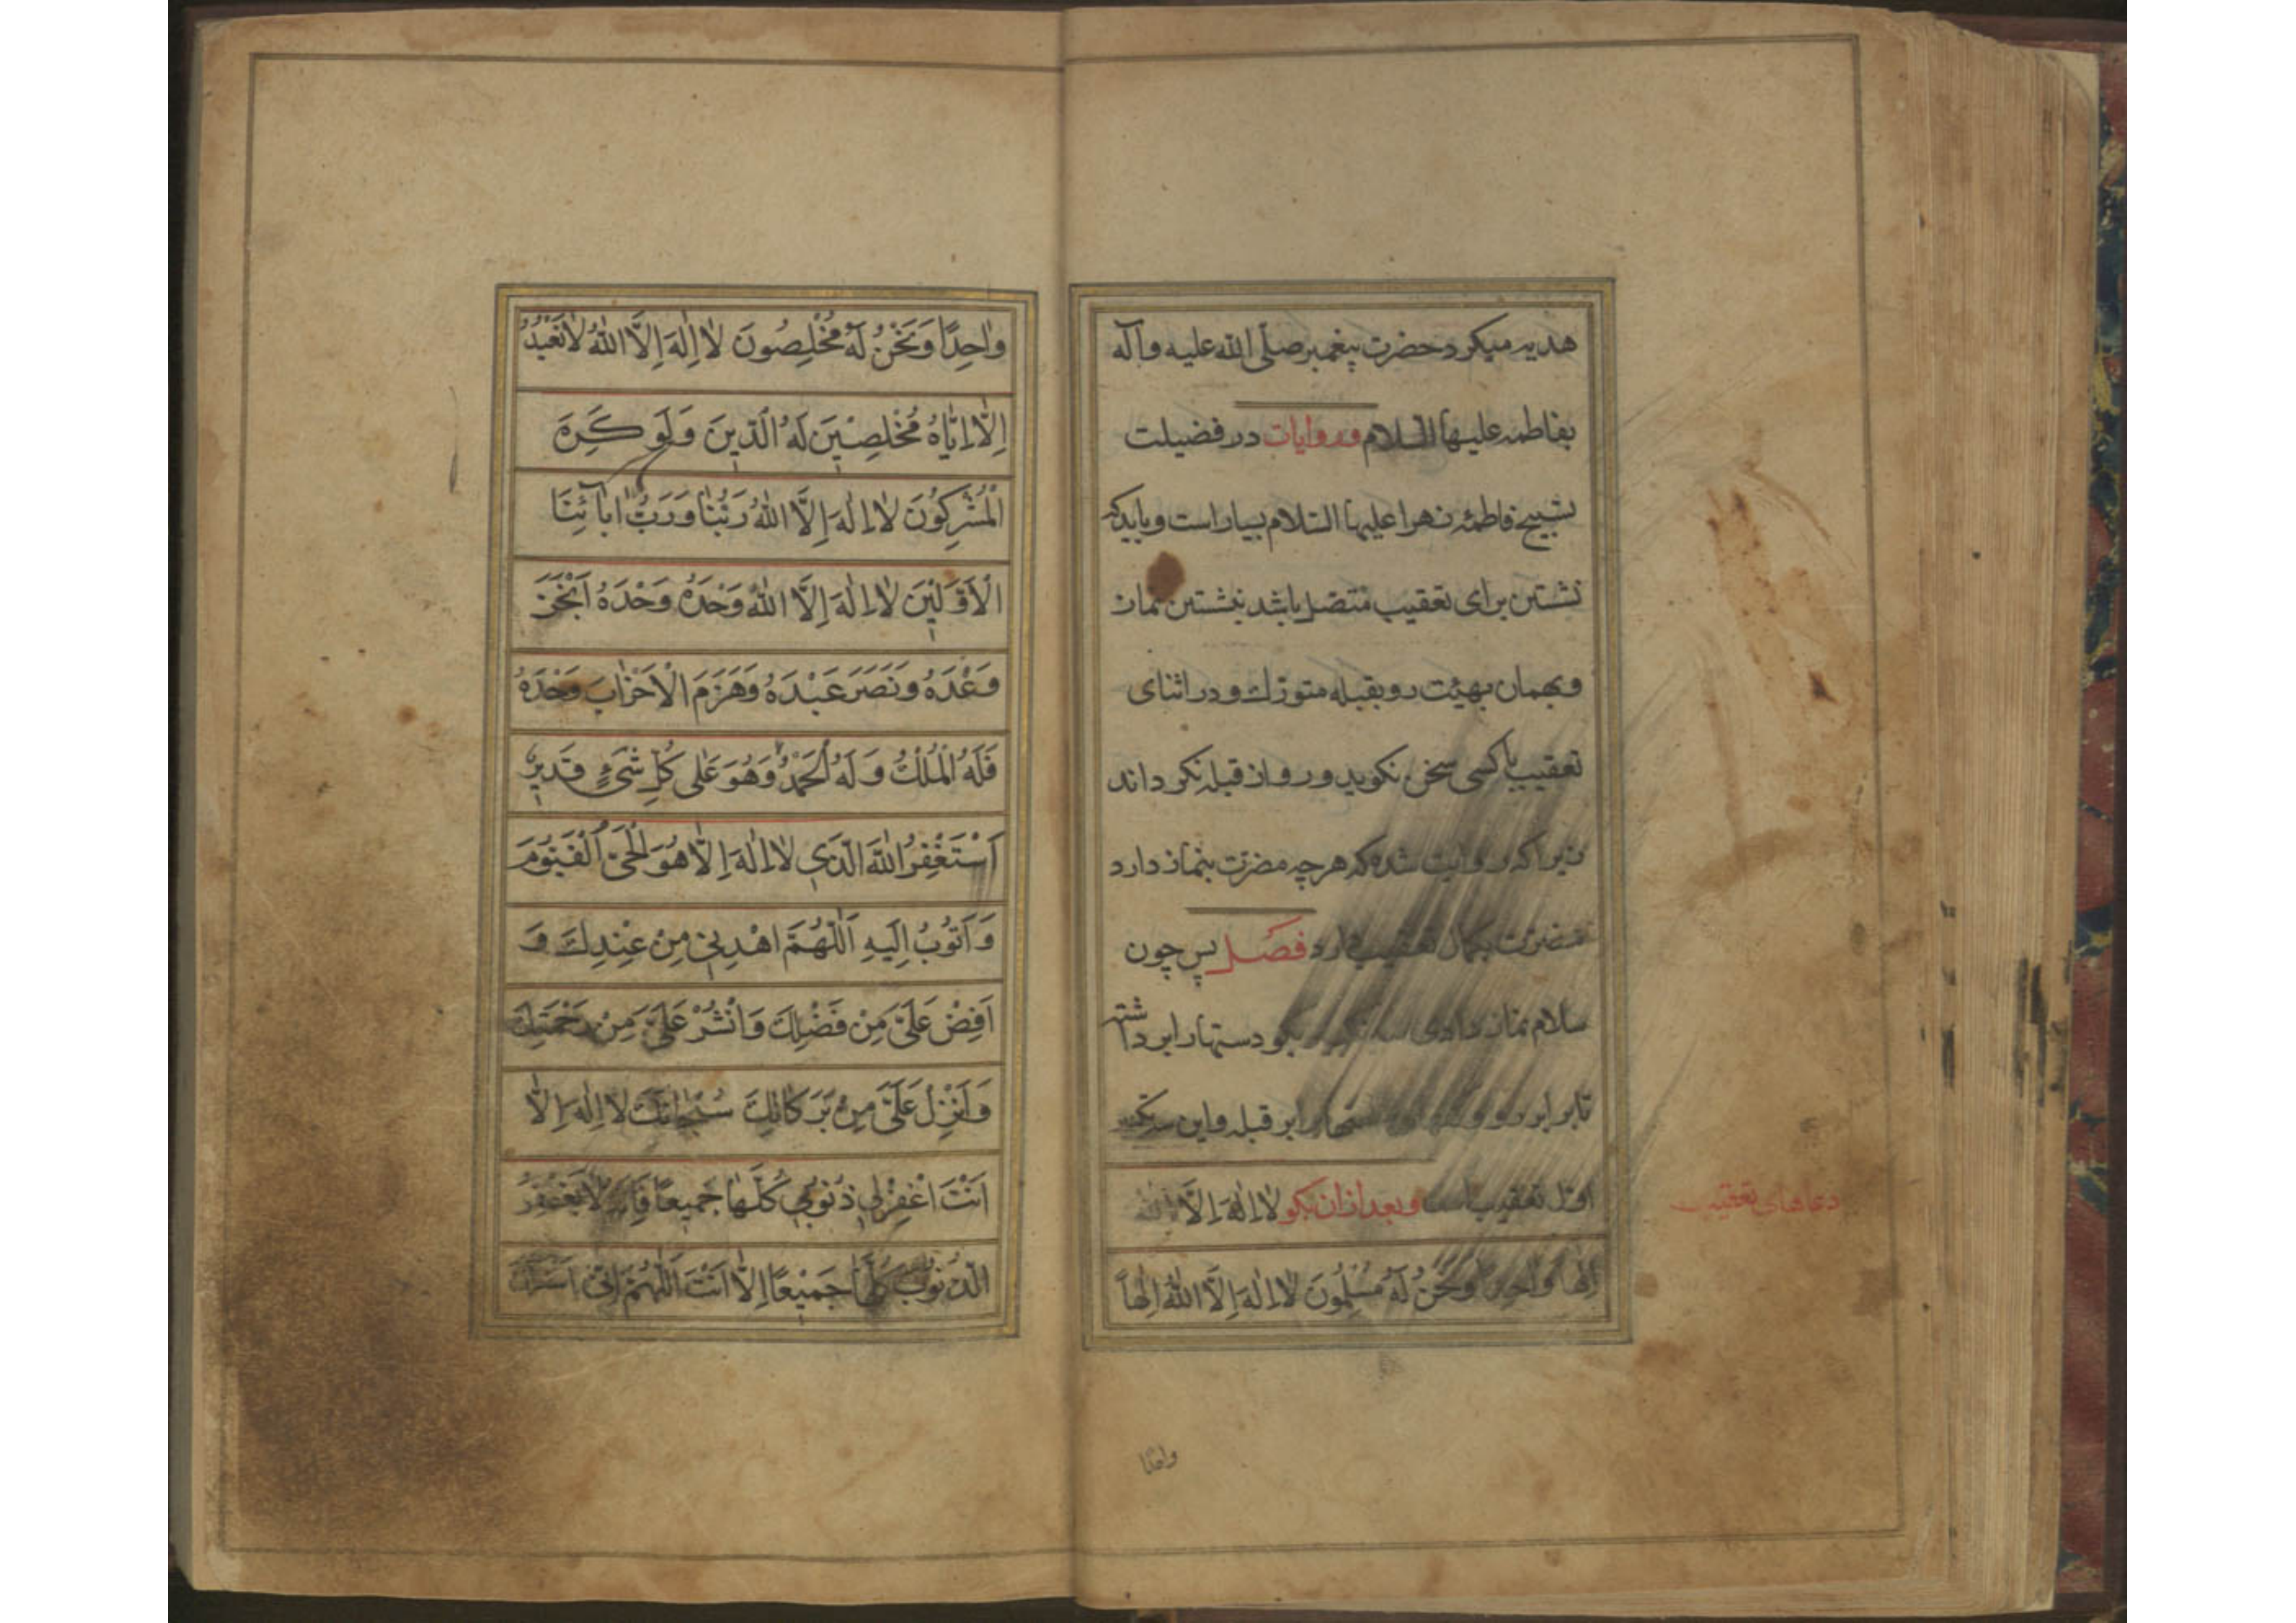 هدیه میکرد حضرت پیغمبر صلّی الله علیه وآله
بفاطمه علیها السلام و روایات در فضیلت
تسبیح فاطمهٔ زهرا علیها السّلام بسیار است و باید که
نشستن برای تعقیب متصل باشد بنشستن نماز
و بهمان بهیئت رو بقبله متورّك و در اثنای
تعقیب با کسی سخن نکوید و رو از قبله نکرداند
زیرا که روایت شده که هرچه مضرّت بنماز دارد
مضرّت بکمال تعقیب دارد فصل پس چون
سلام نماز دادی سه بکو دستها را برداشته
تا برابر رو و برابر قبله و این سه تکبیر
اوّل تعقیب است و بعد از ان بکو لٰا اِلٰهَ اِلَّا اللّٰه
اِلٰهاً وٰاحِداً وَنَحْنُ لَهُ مُسْلِمُونَ لٰا اِلٰهَ اِلَّا اللّٰهُ اِلٰهاً
دعاهای تعقیب
واحدًا
وٰاحِدًا وَنَحْنُ لَهُ مُخْلِصُونَ لٰا اِلٰهَ اِلَّا اللّٰهُ لٰا نَعْبُدُ
اِلّٰا اِیّٰاهُ مُخْلِصِیْنَ لَهُ الَدّینَ وَلَو کَرِهَ
الْمُشْرِکُونَ لٰا اِلٰهَ اِلَّا اللّٰهُ رَبُّنٰا وَرَبُّ اٰبٰآئِنَا
الْاَوَّلیٖنَ لٰا اِلٰهَ اِلَّا اللّٰهُ وَحْدَهُ وَحْدَهُ وَحْدَهُ اَنْجَزَ
وَعْدَهُ وَنَصَرَ عَبْدَهُ وَهَزَمَ الْاَحْزٰابَ وَحْدَهُ
فَلَهُ الْمُلْكُ وَلَهُ الْحَمْدُ وَهُوَ عَلٰی کُلِّ شَیْءٍ قَدیٖرٌ
اَسْتَغْفِرُ اللّٰهَ الَّذی لٰا اِلٰهَ اِلّٰا هُوَ الْحَیُّ الْقَیُّومَ
وَ اَتُوبُ اِلَیهِ اَللّٰهُمَّ اهْدِنیٖ مِنْ عِنْدِكَ وَ
اَفِضْ عَلَیَّ مِنْ فَضْلِكَ وَانْشُرْ عَلَیَّ مِنْ رَحْمَتِكَ
وَ اَنْزِلْ عَلَیَّ مِنْ بَرَکٰاتِكَ سُبْحٰانَكَ لٰا اِلٰهَ اِلّٰا
اَنْتَ اغْفِرْلیٖ ذُنُوبیٖ کُلَّهٰا جَمیٖعاً فَاِنَّهُ لٰا یَغْفِرُ
الذُّنُوبَ کُلَّهٰا جَمیٖعًا اِلّٰا اَنْتَ اَللّٰهُمَّ اِنّیٖ اَسْئَلُكَ